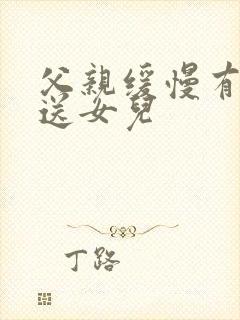 父親缓慢有
送女兒
丁路